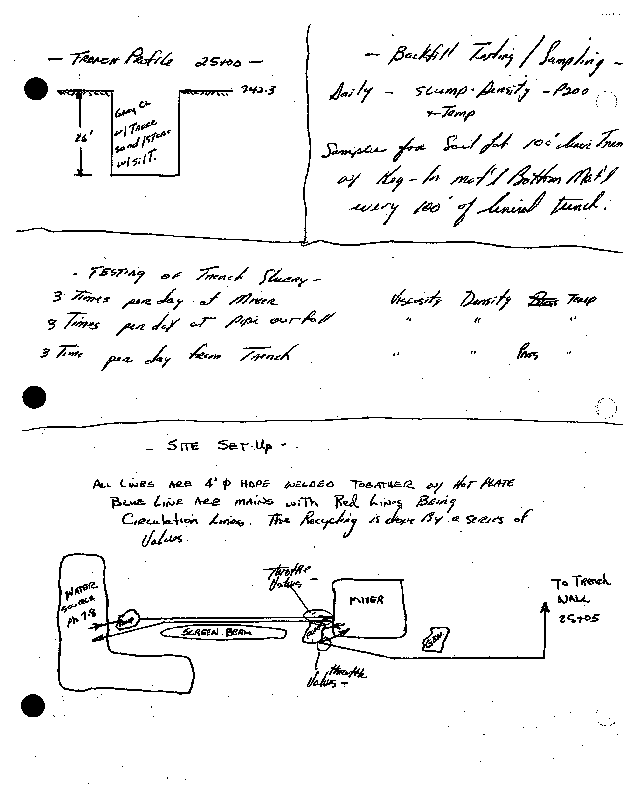 - Trench Profile 25+00 -
242.3
26'
Gray CL
w/ Trace
sand
w/ silt.
- Backfill Testing / Sampling -
Daily - Slump - Density - P200
+ Temp
Samples for Soil Lab 100' lineal Tren
w/ Key-In mat'l Bottom Mat'l
every 100' of lineal trench.
- TESTING OF Trench Slurry -
3 Times per day at Mixer Viscosity Density Temp
3 Times per day at pipe outfall " " "
3 Time per day from Trench " "
- SITE SET-Up -
ALL LINES ARE 4" ϕ HDPE WELDED TOGEATHER w/ HOT PLATE
BLUE LINE ARE MAINS with Red Lines Being
Circulation Lines. The Recycling is done By a series of
Values.
WATER
SOURCE
Ph 7.8
Pump
SCREEN BEAM
Throttle
Values -
MIXER
Values throttle -
To Trench
WALL
25+05